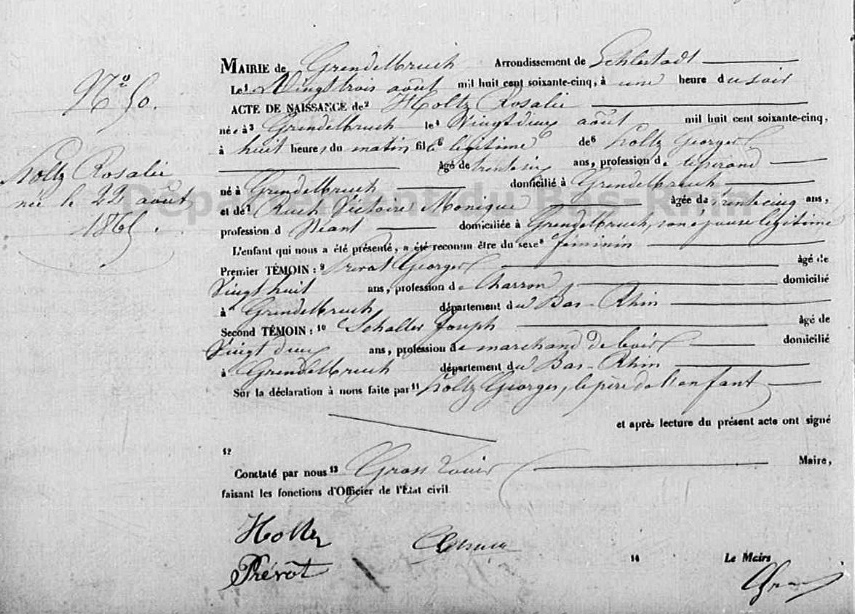 N° 50.
Holtz Rosalie
née le 22 août
1865.
MAIRIE de Grendelbruch Arrondissement de Schlestadt
Le¹ Vingt trois août mil huit cent soixante-cinq, à une heure du soir
ACTE DE NAISSANCE de² Holtz Rosalie
née à³ Grendelbruch le⁴ Vingt deux août mil huit cent soixante-cinq,
à huit heures du matin fille⁵ légitime de⁶ Holtz Georges
âgé de trente six ans, profession de
né à Grendelbruch domicilié à Grendelbruch
et de⁷ Ruch Victoire Monique âgée de trente cinq ans,
profession d Néant domiciliée à Grendelbruch, son épouse légitime
L'enfant qui nous a été présenté, a été reconnu être du sexe⁸ féminin
Premier TÉMOIN : ⁹ Prévot Georges âgé de
Vingt huit ans, profession de Charron domicilié
à Grendelbruch département du Bas-Rhin
Second TÉMOIN : ¹⁰ Schaller Joseph âgé de
Vingt deux ans, profession de marchand de bois domicilié
à Grendelbruch département du Bas-Rhin
Sur la déclaration à nous faite par¹¹ Holtz Georges, le père de l'enfant
et après lecture du présent acte ont signé
12
Constaté par nous¹³ Gross Louis Maire,
faisant les fonctions d'Officier de l'État civil
Holtz
Prévôt
14 Le Maire
Département du Bas-Rhin